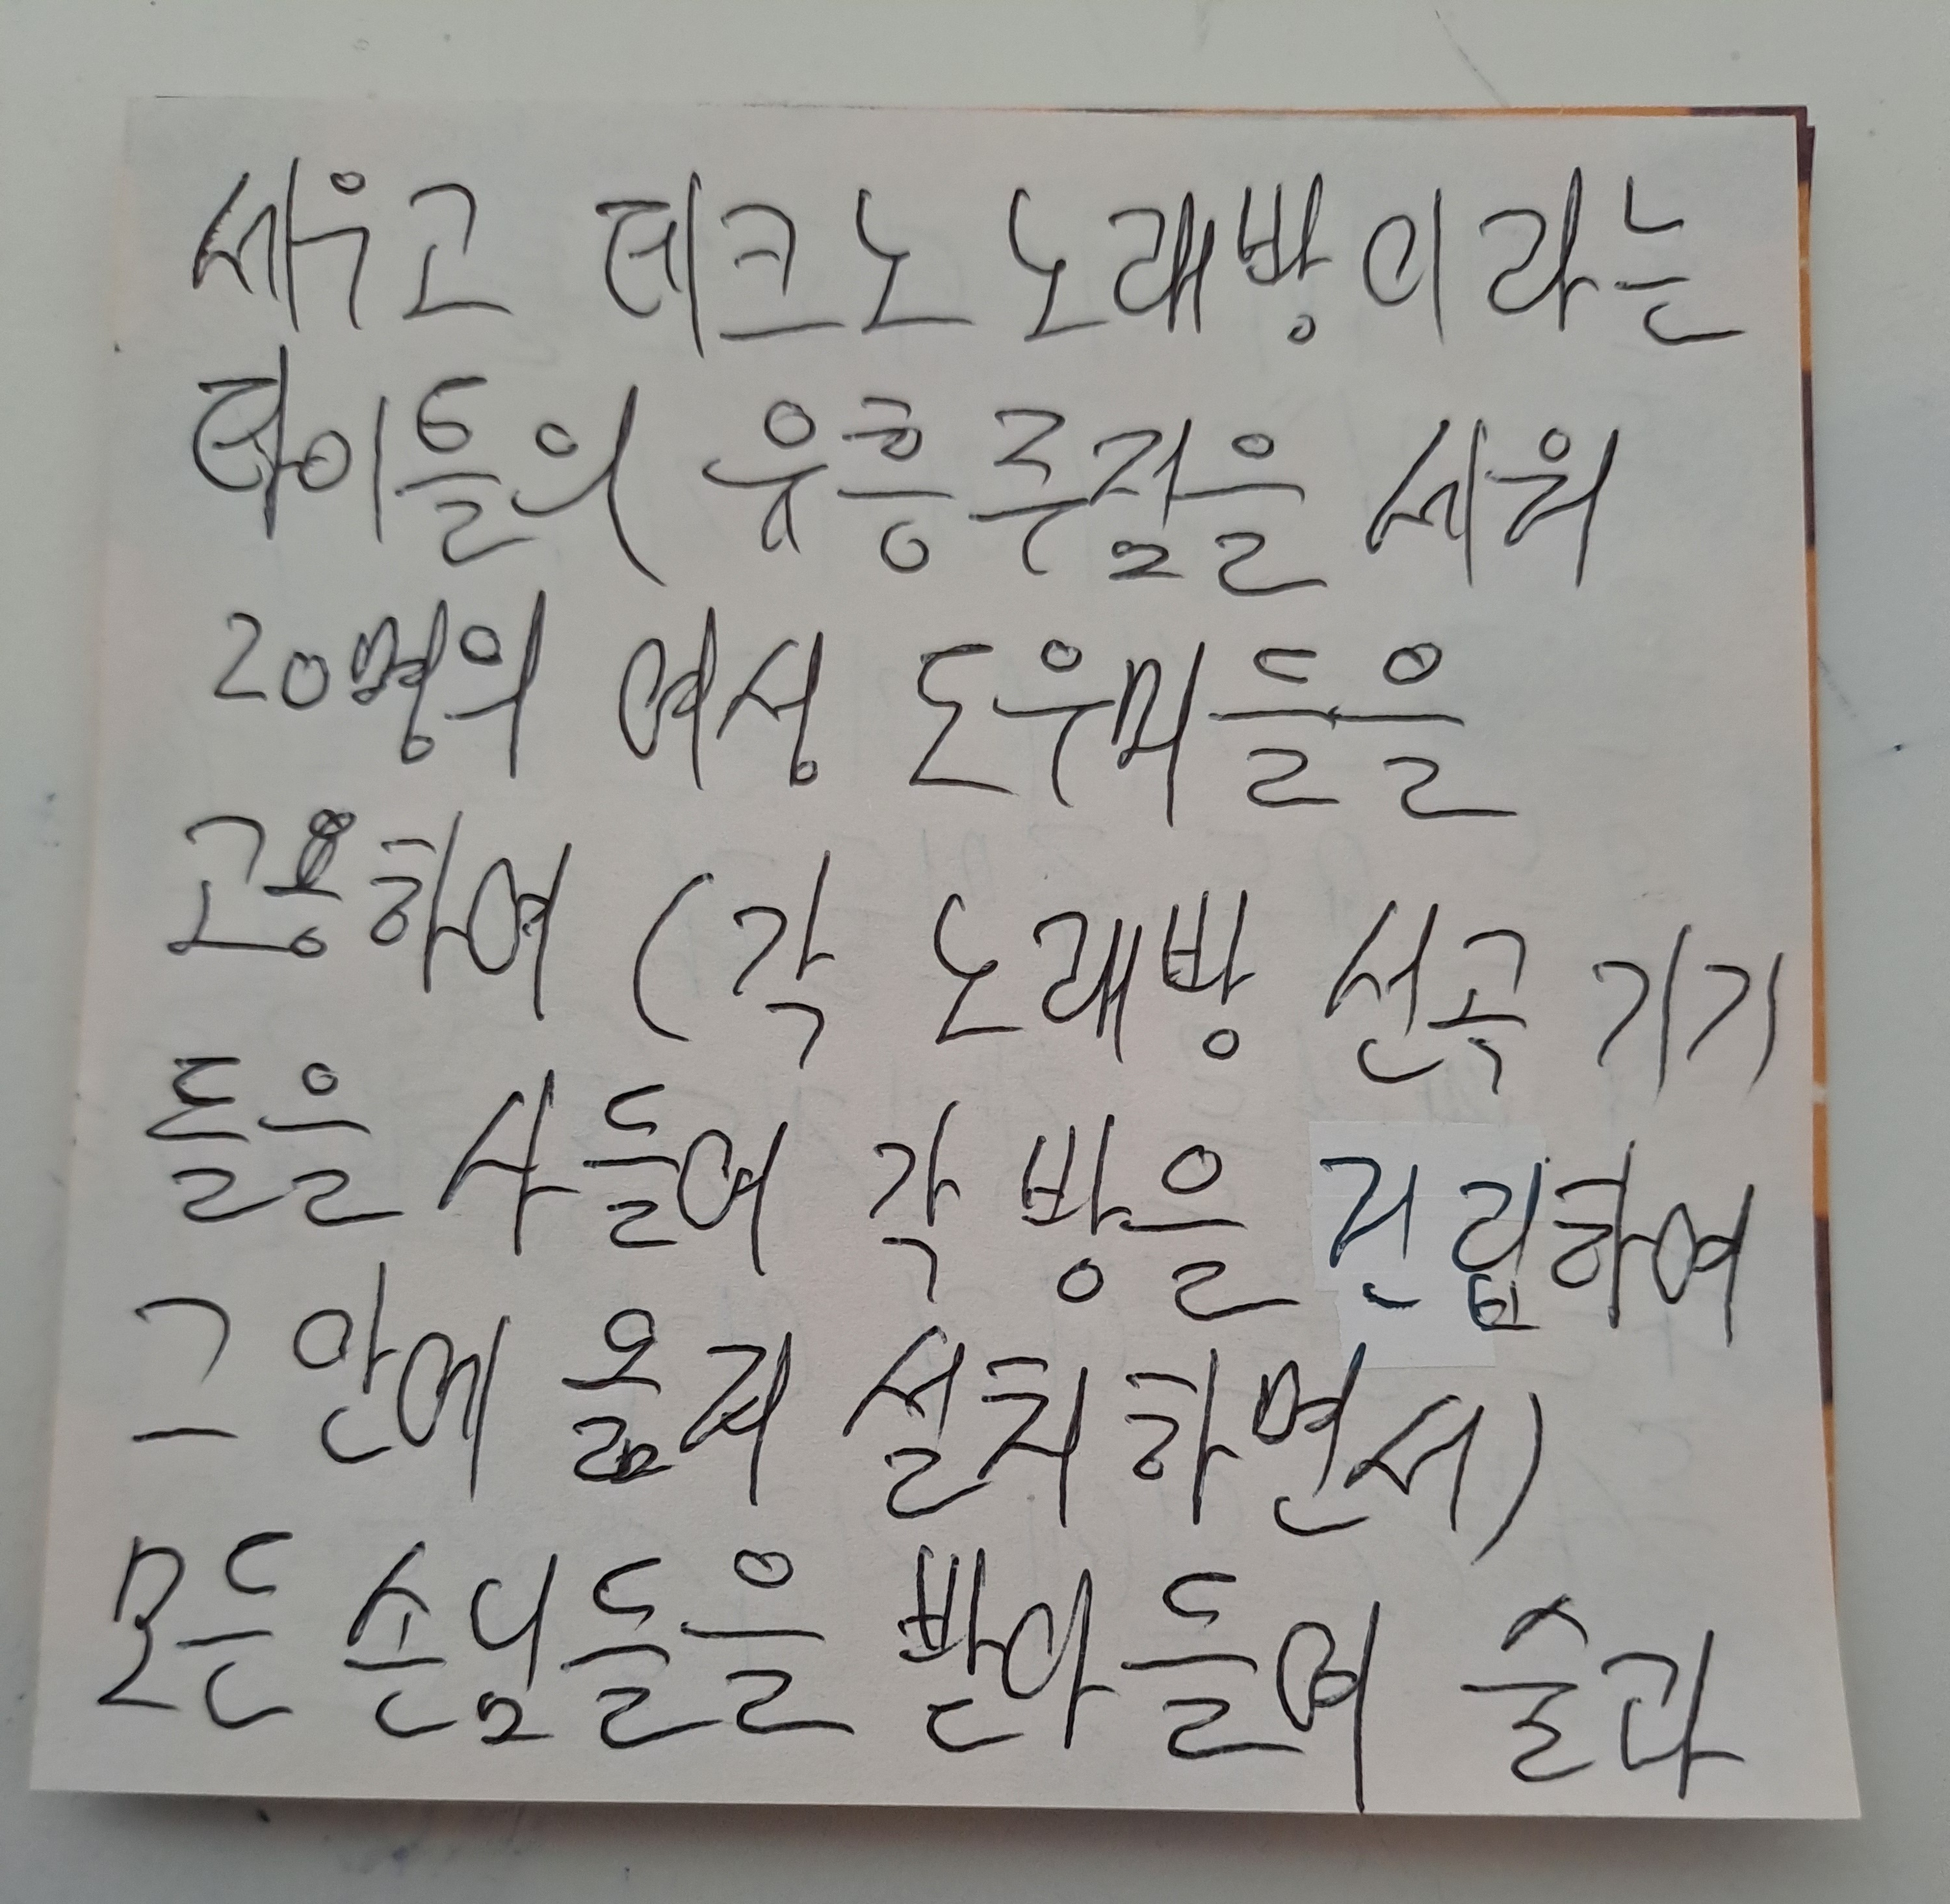 세우고 테크노 노래방이라는
타이틀의 유흥주점을 세워
20명의 여성 도우미들을
고용하여 (각 노래방 선곡 기기
들을 사들여 각 방을 건립하여
그 안에 옮겨 설치하면서)
모든 손님들을 받아들여 술과